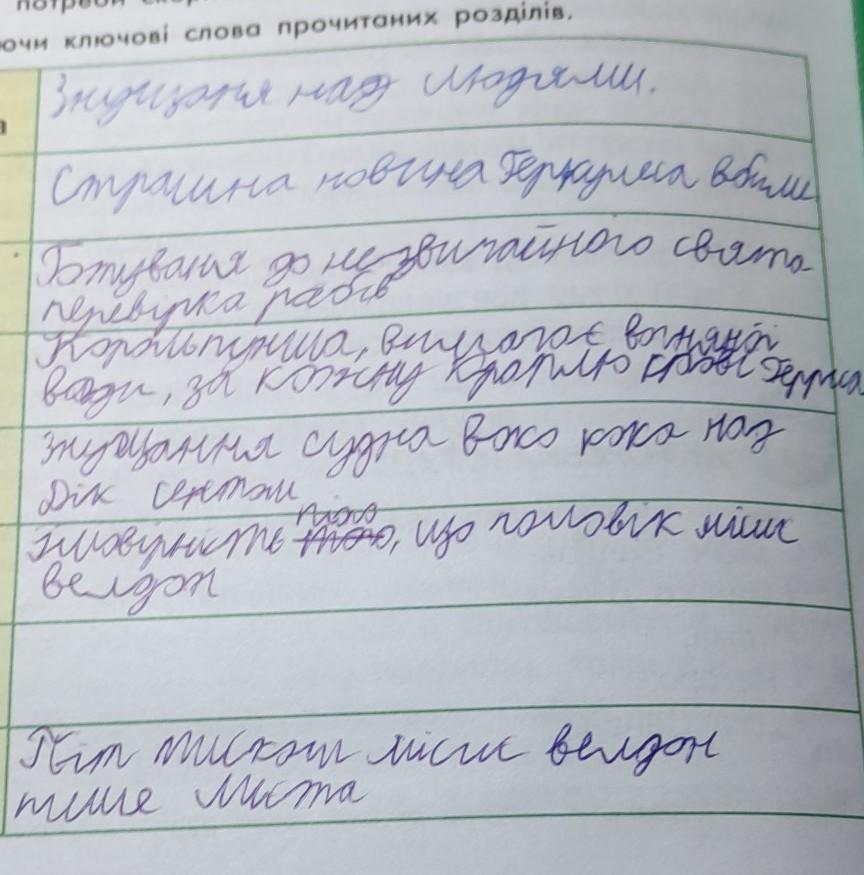 потреби скор
ючи ключові слова прочитаних розділів.
а
Знущання над людями.
Страшна новина Геркулеса вбили
Готування до незвичайного свята
перевірка рабів
вимагає вогняної
води, за кожну краплю крові
Знущання судна воко кока над
Дік сентом
Імовірність того, що чоловік місис
велдон
Під тиском місис велдон
пише листа